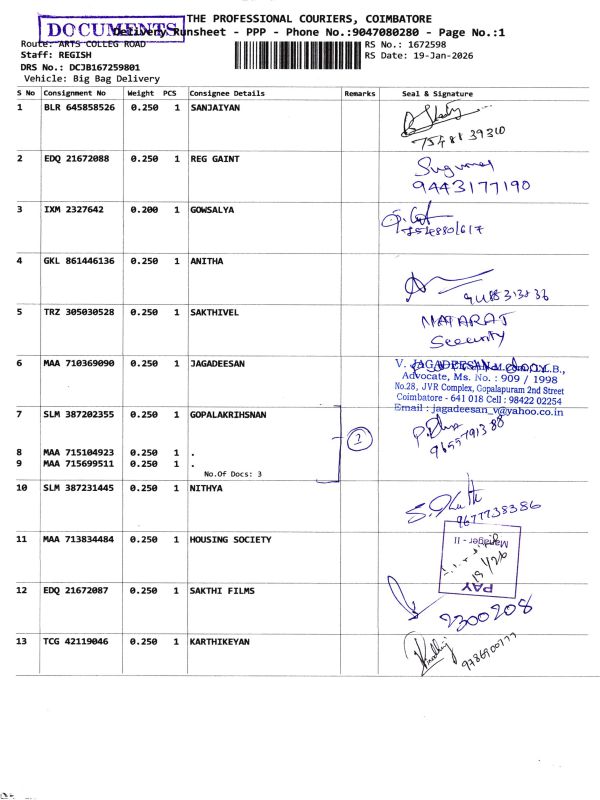 THE PROFESSIONAL COURIERS, COIMBATORE
DOCUMENTS
Delivery Runsheet - PPP - Phone No.:9047080280 - Page No.:1
Route: ARTS COLLEG ROAD
RS No.: 1672598
Staff: REGISH
RS Date: 19-Jan-2026
DRS No.: DCJB167259801
Vehicle: Big Bag Delivery
S No Consignment No Weight PCS Consignee Details Remarks Seal & Signature
1 BLR 645858526 0.250 1 SANJAIYAN
2 EDQ 21672088 0.250 1 REG GAINT
9443177190
3 IXM 2327642 0.200 1 GOWSALYA
4 GKL 861446136 0.250 1 ANITHA
5 TRZ 305030528 0.250 1 SAKTHIVEL
Security
6 MAA 710369090 0.250 1 JAGADEESAN
V. JAGADEESAN
Advocate, Ms. No. : 909 / 1998
No.28, JVR Complex, Gopalapuram 2nd Street
Coimbatore - 641 018 Cell : 98422 02254
Email : jagadeesan_v@yahoo.co.in
7 SLM 387202355 0.250 1 GOPALAKRIHSNAN
8 MAA 715104923 0.250 1 .
9 MAA 715699511 0.250 1 .
No.Of Docs: 3
10 SLM 387231445 0.250 1 NITHYA
9677738386
11 MAA 713834484 0.250 1 HOUSING SOCIETY
Manager - II
19/1/26
PAY
12 EDQ 21672087 0.250 1 SAKTHI FILMS
2300208
13 TCG 42119046 0.250 1 KARTHIKEYAN